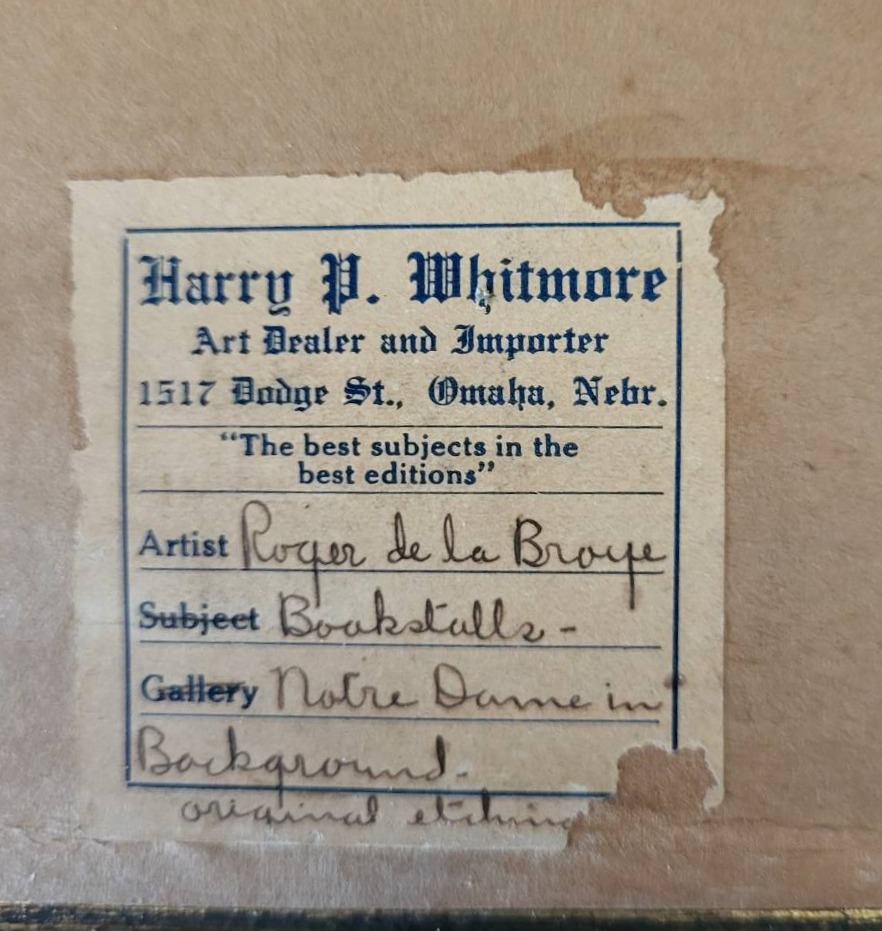 Harry P. Whitmore
Art Dealer and Importer
1517 Dodge St., Omaha, Nebr.
"The best subjects in the
best editions"
Artist Roger de la Broye
Subject Bookstalls -
Gallery Notre Dame in
Background.
original etching